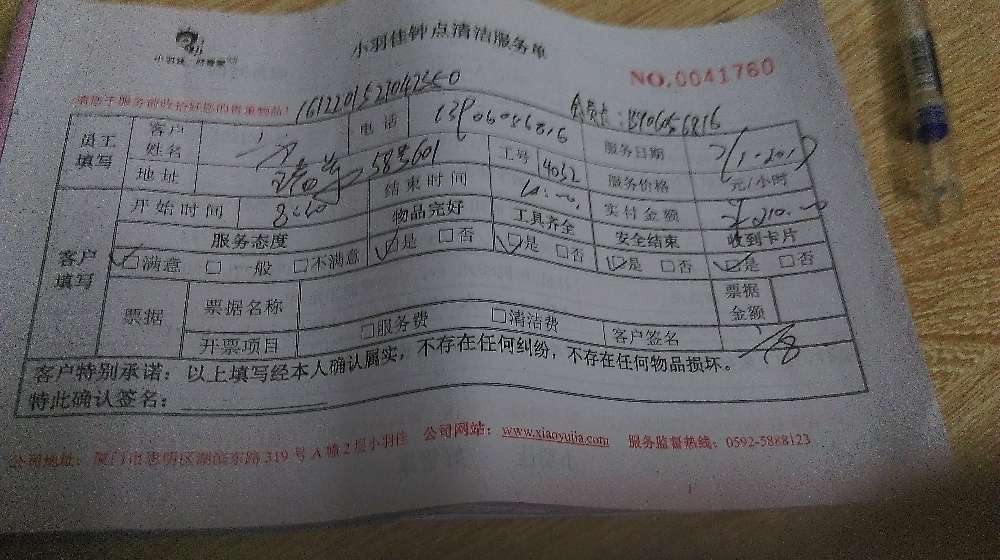 小羽佳钟点清洁服务单
小羽佳
NO.0041760
请您于服务前收拾好您的贵重物品!
员工填写 客户姓名 电话 服务日期
地址 58号601 工号 4032 服务价格 元/小时
开始时间 结束时间 实付金额 ¥210.00
客户填写 服务态度 物品完好 工具齐全 安全结束 收到卡片
☑满意 □一般 □不满意 ☑是 □否 ☑是 □否 ☑是 □否 ☑是 □否
票据 票据名称 票据金额
开票项目 □服务费 □清洁费 客户签名
客户特别承诺：以上填写经本人确认属实，不存在任何纠纷，不存在任何物品损坏。
特此确认签名：
公司地址：厦门市思明区湖滨东路319号A幢2层小羽佳 公司网站：www.xiaoyujia.com 服务监督热线：0592-5888123